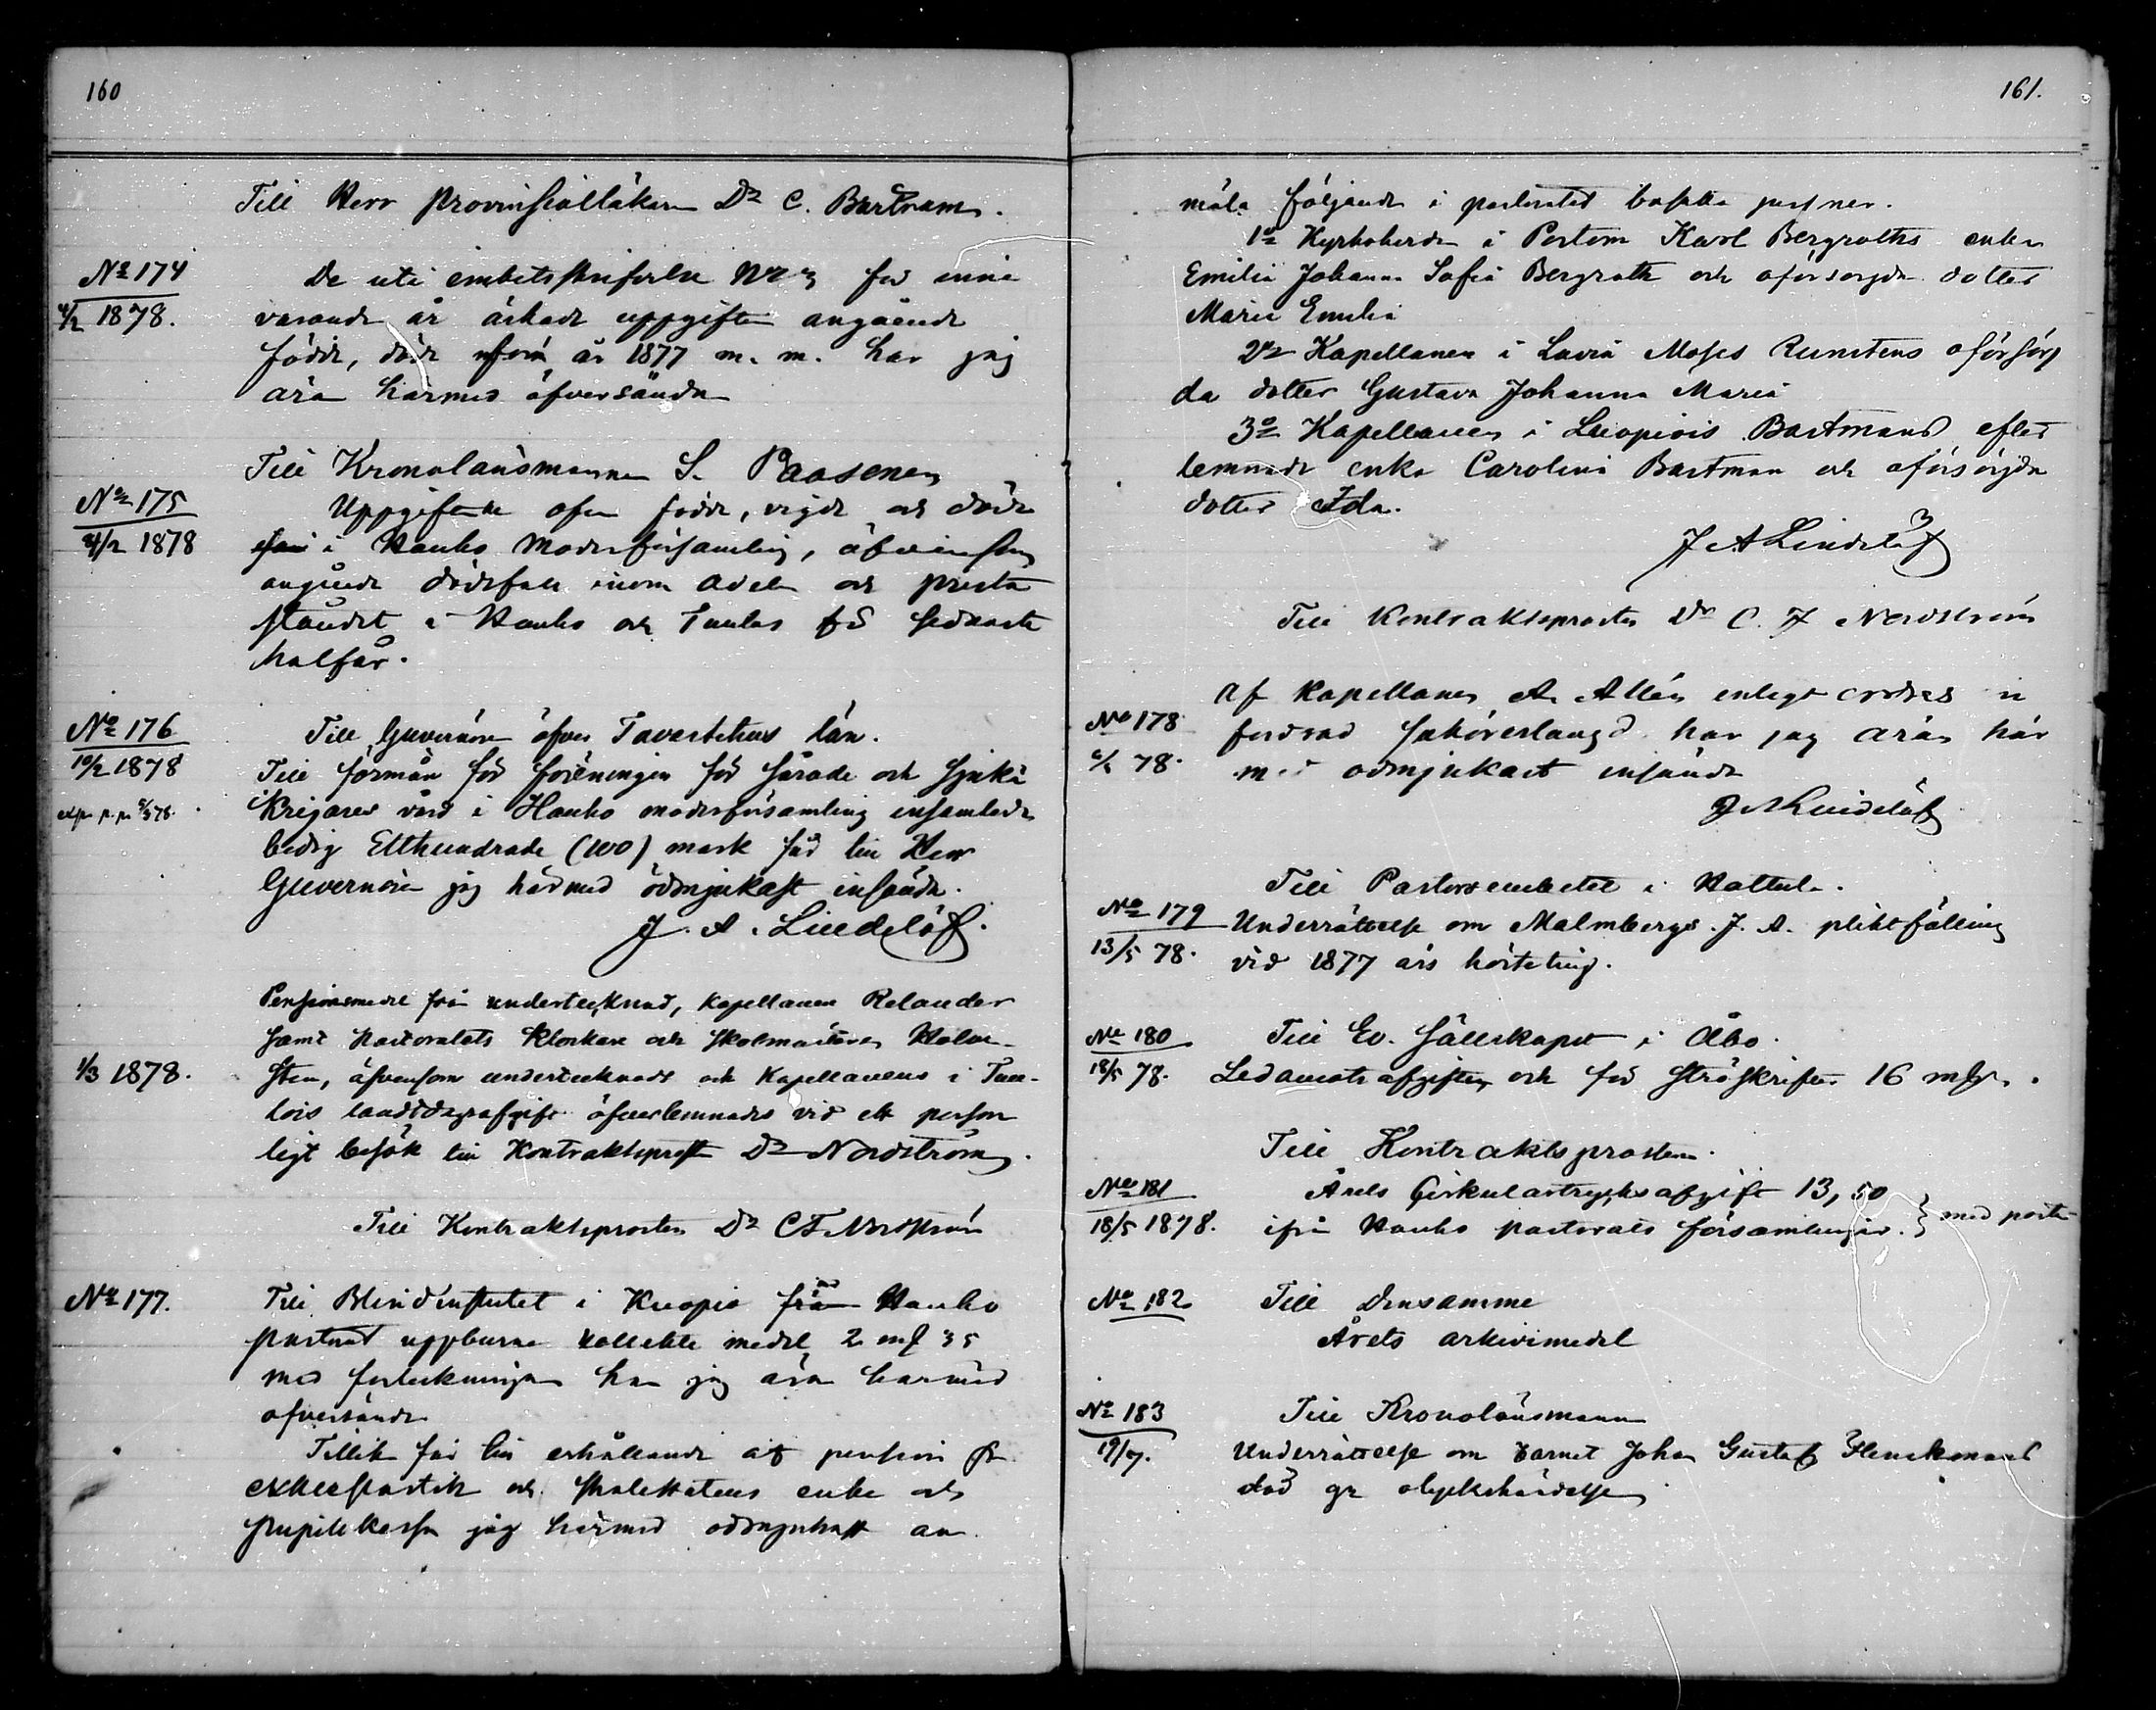 160
Till Herr Provinsialläkaren Dr C. Bartram.
No 174
4/2 1878.
De uti embetsskrifvelse No 3 för inne
varande år äskade uppgifter angående
födde, döde ifrån år 1877 m. m. har jag
äran härmed öfversända
Till Kronolänsmannen S. Paasonen
No 175
4/2 1878
Uppgifterne öfver födde, vigde och döde
i Hauho Moderförsamling, äfvensom
angående dödsfall inom Adeln och preste
ståndet i Hauho och Tuulos för sednaste
halfår.
No 176
10/2 1878
Till Guvernören öfver Tavastehus län.
Till förmån för föreningen för sårade och sjuka
Krigares vård i Hauho moderförsamling insamlade
bidrag Etthundrade (100) mark får till Herr
Guvernören jag härmed ödmjukast insända.
J. A. Lindelöf.
1/3 1878.
Pensionsmedel från undertecknad, kapellanen Relander
samt Pastoratets klockare och skolmästaren Holm-
sten, äfvensom undertecknads och Kapellanens i Tuu-
lois landtdagsafgift öfverlemnades vid ett person
ligt besök till Kontraktsprosten Dr Nordström.
Till Kontraktsprosten Dr C F Nordström
No 177.
Till Blindinstitutet i Kuopio från Hauho
pastorat uppburna kollekte medel 2 mk 35
med förteckningen har jag äran härmed
öfversända
Tillika får till erhållande af pension fr.
ecklesiastik och skolestatens enke och
pupillkassa jag härmed ödmjukast an
161.
mäla följande i pastoratet bosatta personer.
1o Kyrkoherden i Portom Karl Bergroths enka
Emilia Johanna Sofia Bergroth och oförsörjda dotter
Maria Emilia
2o Kapellanen i Lavia Moses Runstens oförsörj
da dotter Gustava Johanna Maria
3o Kapellanen i Luopiois Bartmans efter
lemnade enka Carolina Bartman och oförsörjda
dotter Ida.
J A Lindelöf
Till Kontraktsprosten Dr C. F Nordström
No 178
78.
Af Kapellanen A. Allén enligt ordres in
fordrad har jag äran här
med ödmjukast insända
J A Lindelöf
Till Pastorsembetet i Hattula.
No 179
13/5 78.
Underrättelse om Malmbergs J. A. pliktfälling
vid 1877 års hösteting.
No 180
18/5 78.
Till Ev. Sällskapet i Åbo.
Ledamotsafgiften och för ströskrifter 16 mk.
Till Kontraktsprosten.
No 181
18/5 1878.
Årets Cirkulärtrycksafgift 13,50
ifrån Hauho pastorats församlingar. } med porto
No 182
Till Densamme
Årets arkivimedel
No 183
19/7.
Till Kronolänsmannen
Underrättelse om barnet Johan Gustaf Henrikssons
död gr olyckshändelse